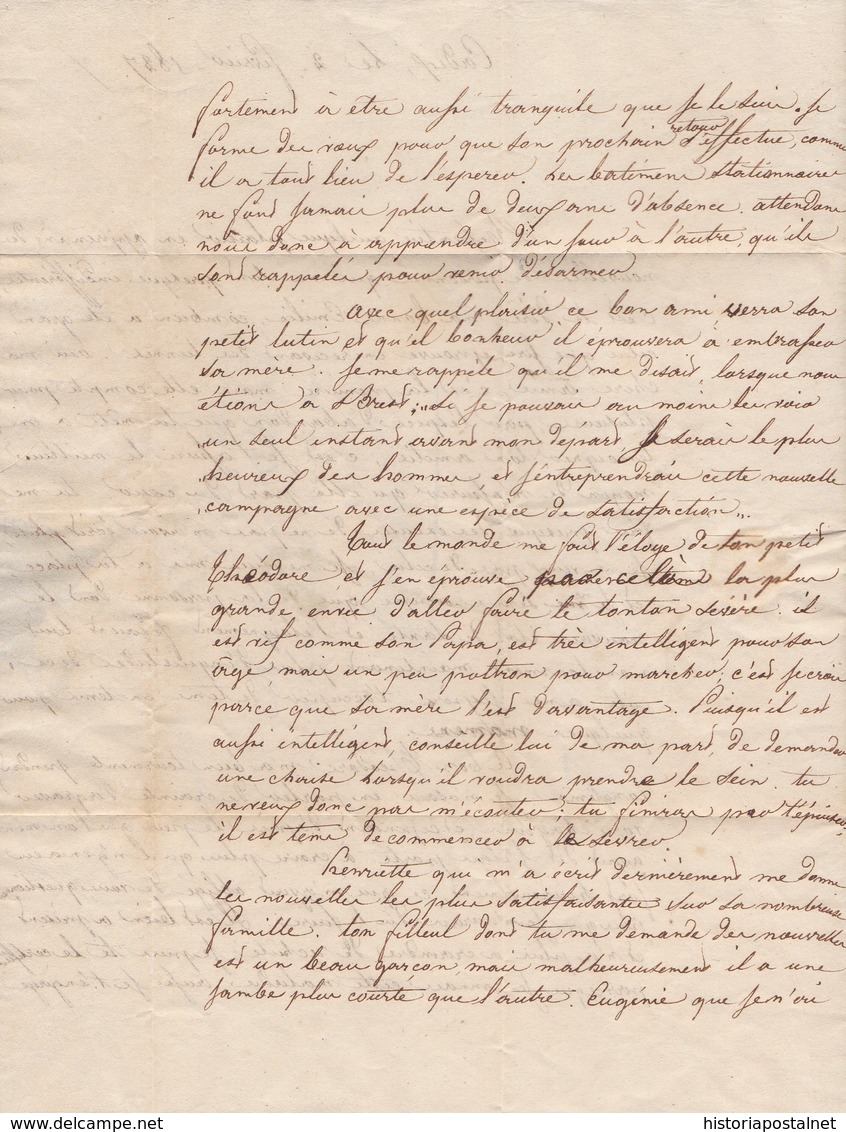 fortement à etre aussi tranquile que je le suis. je
forme des vœux pour que son prochain retour s'effectue, comme
il a tout lieu de l'esperer. Les batimens stationnaires
ne font jamais plus de deux ans d'absence. attendons
nous donc à apprendre d'un jour à l'autre, qu'ils
sont rappelés pour venir désarmer.
avec quel plaisir ce bon ami verra son
petit lutin et qu'il bonheur il éprouvera à embrasser
sa mère. Je me rappèle qu'il me disait, lorsque nous
étions à Brest, „Si je pouvais au moins les voir
„un seul instant avant mon départ, je serais le plus
„heureux des hommes, et j'entreprendrais cette nouvelle
„campagne avec une espèce de satisfaction„.
Tout le monde me fait l'éloge de ton petit
Théodore et j'en éprouve la plus
grande envie d'aller faire le tonton sévère. il
est vif comme son Papa, est très intelligent pour son
âge, mais un peu poltron pour marcher; c'est je crois
parce que sa mère l'est davantage. Puisqu'il est
aussi intelligent, conseille lui de ma part, de demander
une chaise lorsqu'il voudra prendre le sein. tu
ne veux donc pas m'écouter; tu finiras par t'épuiser.
il est tems de commencer à le sevrer.
Henriette qui m'a écrit dernièrement me donne
les nouvelles les plus satisfaisantes sur sa nombreuse
famille. ton filleul dont tu me demande des nouvelles
est un beau garçon, mais malheureusement il a une
jambe plus courte que l'autre. Eugénie que je n'ai
delcampe.net
historiapostalnet